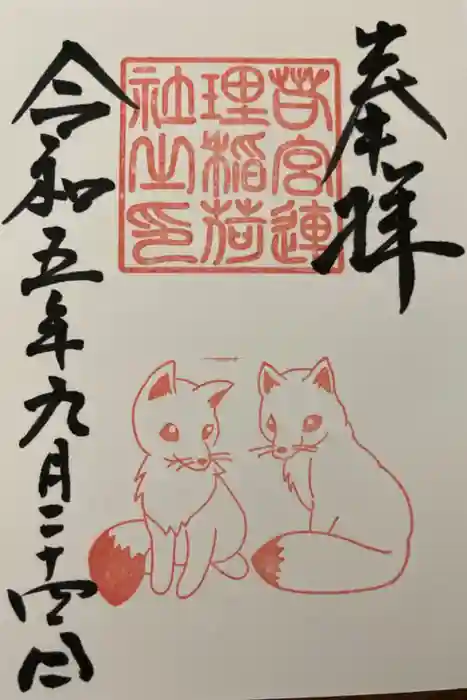 奉拝
若宮連
理稲荷
社之印
令和五年九月二十四日